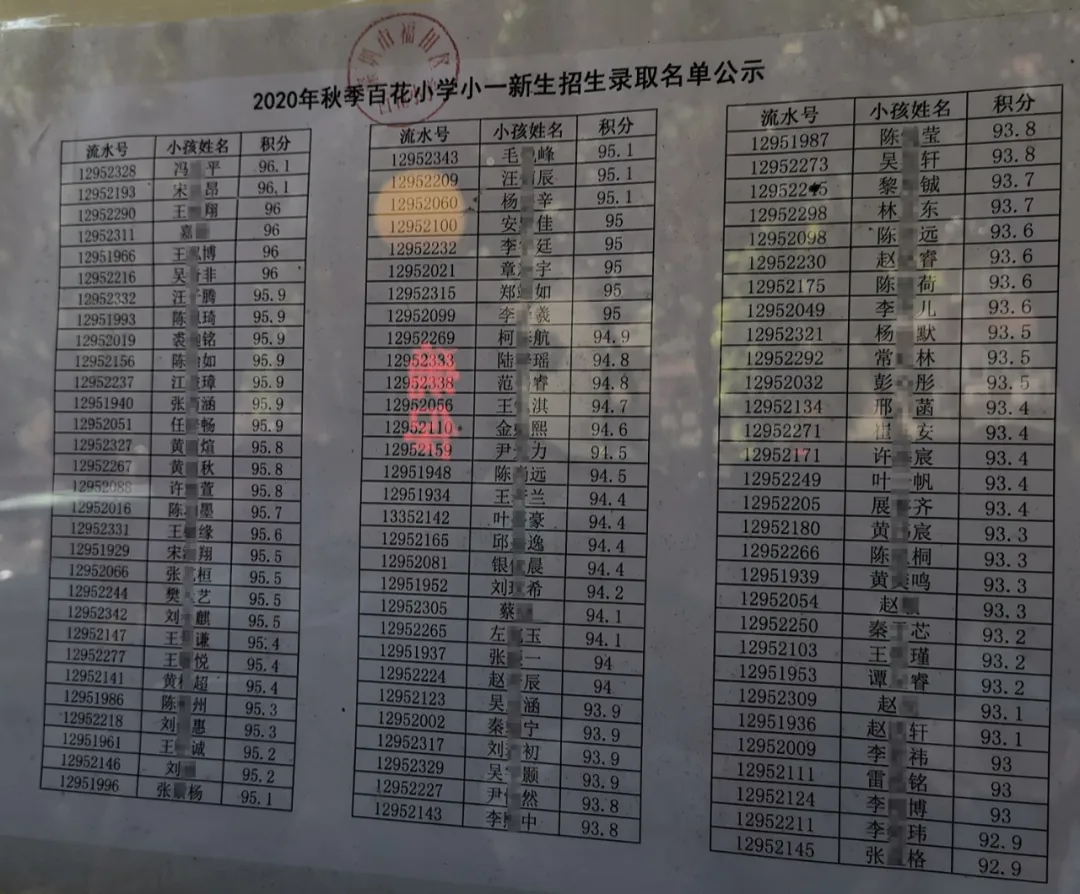 圳市福田区
2020年秋季百花小学小一新生招生录取名单公示
流水号 小孩姓名 积分
12952328 冯 平 96.1
12952193 宋 昂 96.1
12952290 王 翔 96
12952311 嘉 96
12951966 王 博 96
12952216 吴 非 96
12952332 汪 腾 95.9
12951993 陈 琦 95.9
12952019 裘 铭 95.9
12952156 陈 如 95.9
12952237 江 璋 95.9
12951940 张 涵 95.9
12952051 任 畅 95.9
12952327 黄 煊 95.8
12952267 黄 秋 95.8
12952088 许 萱 95.8
12952016 陈 墨 95.7
12952331 王 缘 95.6
12951929 宋 翔 95.5
12952066 张 桓 95.5
12952244 樊 艺 95.5
12952342 刘 麒 95.5
12952147 王 谦 95.4
12952277 王 悦 95.4
12952141 黄 超 95.4
12951986 陈 州 95.3
12952218 刘 惠 95.3
12951961 王 诚 95.2
12952146 刘 95.2
12951996 张 杨 95.1
流水号 小孩姓名 积分
12952343 毛 峰 95.1
12952209 汪 辰 95.1
12952060 杨 辛 95.1
12952100 安 佳 95
12952232 李 廷 95
12952021 章 宇 95
12952315 郑 如 95
12952099 李 羲 95
12952269 柯 航 94.9
12952333 陆 瑶 94.8
12952338 范 睿 94.8
12952056 王 淇 94.7
12952110 金 熙 94.6
12952159 尹 力 94.5
12951948 陈 远 94.5
12951934 王 兰 94.4
13352142 叶 豪 94.4
12952165 邱 逸 94.4
12952081 银 晨 94.4
12951952 刘 希 94.2
12952305 蔡 94.1
12952265 左 玉 94.1
12951937 张 一 94
12952224 赵 辰 94
12952123 吴 涵 93.9
12952002 秦 宁 93.9
12952317 刘 初 93.9
12952329 吴 颢 93.9
12952227 尹 然 93.8
12952143 李 中 93.8
流水号 小孩姓名 积分
12951987 陈 莹 93.8
12952273 吴 轩 93.8
黎 铖 93.7
12952298 林 东 93.7
12952098 陈 远 93.6
12952230 赵 睿 93.6
12952175 陈 荷 93.6
12952049 李 儿 93.6
12952321 杨 默 93.5
12952292 常 林 93.5
12952032 彭 彤 93.5
12952134 邢 菡 93.4
12952271 崔 安 93.4
12952171 许 宸 93.4
12952249 叶 帆 93.4
12952205 展 齐 93.4
12952180 黄 宸 93.3
12952266 陈 桐 93.3
12951939 黄 鸣 93.3
12952054 赵 93.3
12952250 秦 芯 93.2
12952103 王 瑾 93.2
12951953 谭 睿 93.2
12952309 赵 93.1
12951936 赵 轩 93.1
12952009 李 祎 93
12952111 雷 铭 93
12952124 李 博 93
12952211 李 玮 92.9
12952145 张 格 92.9